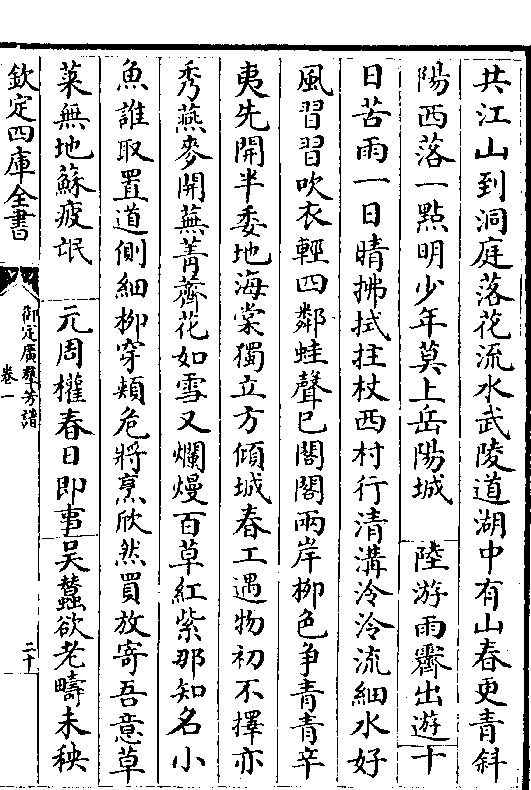 共江山到洞庭落花流水武陵道湖中有山春更青斜
陽西落一點明少年莫上岳陽城　陸游雨霽出遊十
日苦雨一日晴拂拭拄杖西村行清溝泠泠流細水好
風習習吹衣輕四鄰蛙聲已閣閣兩岸柳色爭青青辛
夷先開半委地海棠獨立方傾城春工遇物初不擇亦
秀燕麥開蕪菁薺花如雪又爛熳百草紅紫那知名小
魚誰取置道側細柳穿頰危將烹欣然買放寄吾意草
菜無地蘇疲氓　元周權春日即事吴蠶欲老疇未秧
欽定四庫全書
御定廣羣芳譜
卷一
二十